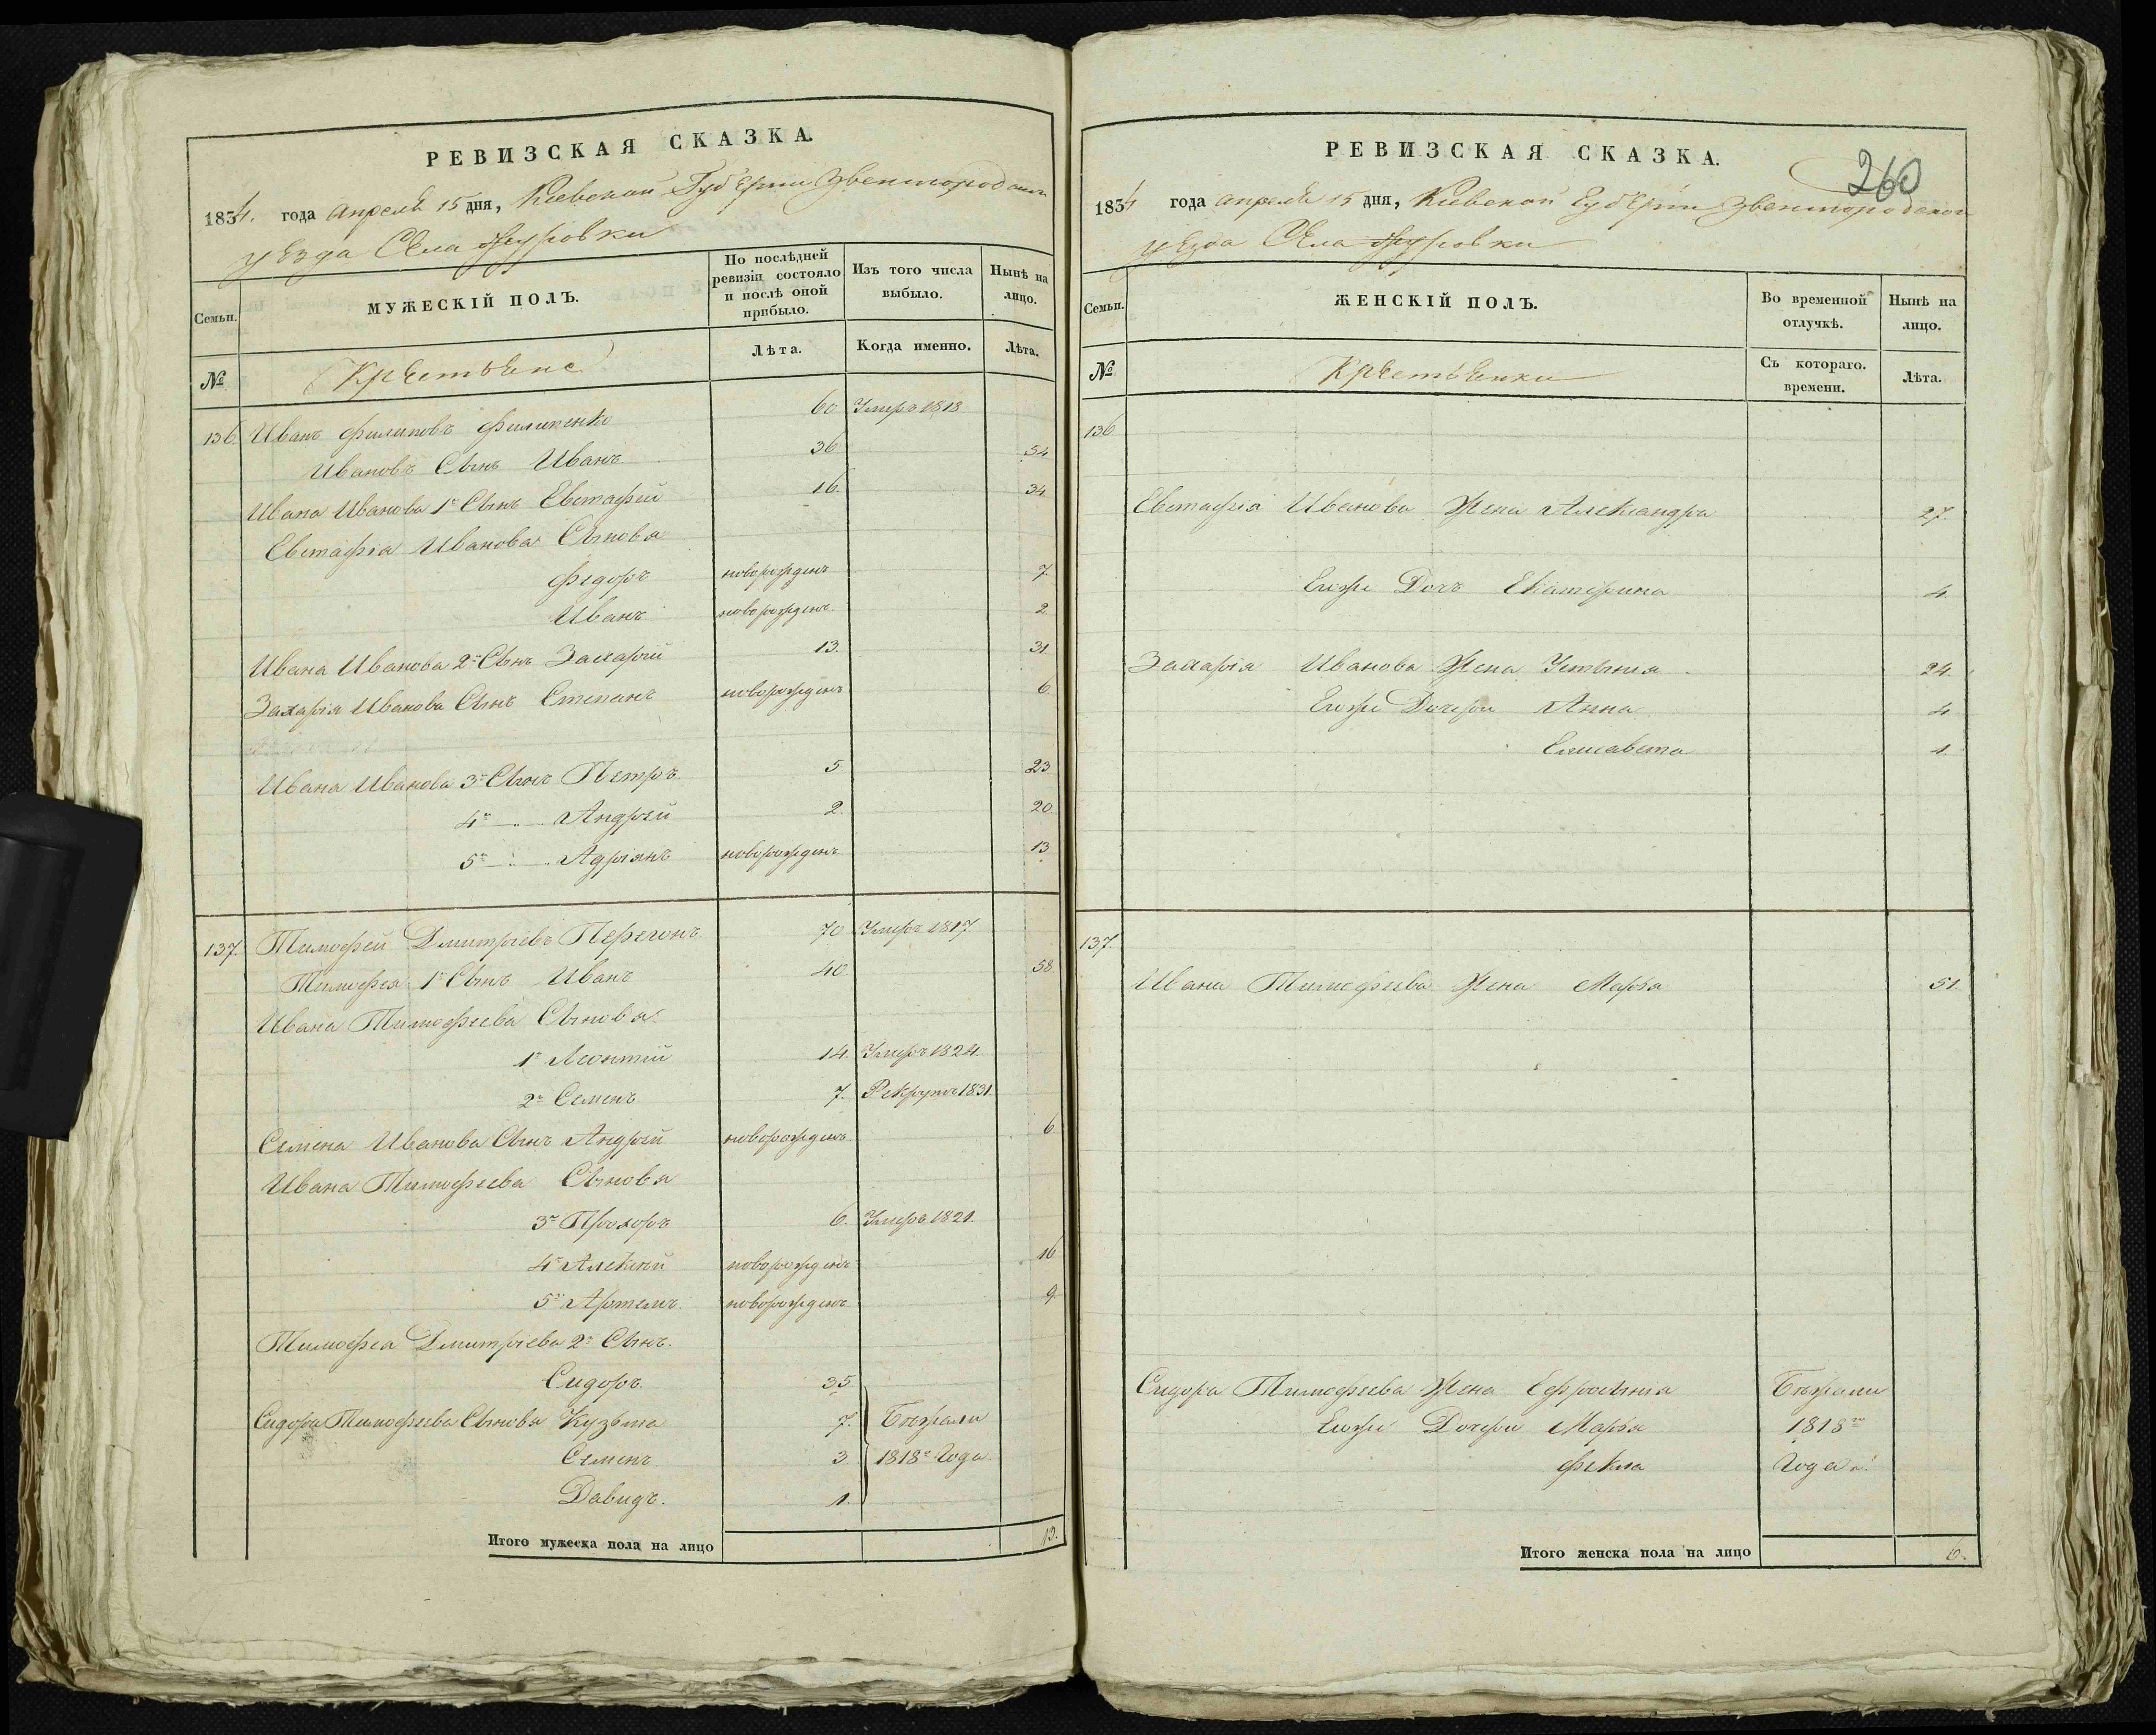 РЕВИЗСКАЯ СКАЗКА.
1834. года апреля 15 дня, Киевской Губернии Звенигородского
уезда Села
Семьи.
МУЖЕСКІЙ ПОЛЪ.
По послѣдней ревизіи состояло и послѣ оной прибыло.
Изъ того числа выбыло.
Нынѣ на лицо.
№
Крестьяне
Лѣта.
Когда именно.
Лѣта.
136. Иванъ Филиповъ Филипенко 60 Умеръ 1818
Ивановъ Сынъ Иванъ 36 54
Ивана Иванова 1й Сынъ Евстафей 16. 34.
Евстафія Иванова Сыновя
Федоръ новорожденъ 7.
Иванъ новорожденъ 2.
Ивана Иванова 2й Сынъ Захарій 13. 31.
Захарія Иванова Сынъ Степанъ новорожденъ 6.
Ивана Иванова 3й Сынъ Петръ 5 23
4й — „ — Андрей 2. 20.
5й — „ — Адріянъ новорожденъ 13
137. Тимофей Дмитріевъ Перегонъ 70 Умеръ 1817
Тимофея 1й Сынъ Иванъ 40. 58
Ивана Тимофеева Сыновя
1й Леонтий 14. Умеръ 1824.
2й Семенъ 7. Рекрутъ 1831.
Семена Иванова Сынъ Андрей новорожденъ 6
Ивана Тимофеева Сыновя
3й Прохоръ 6. Умеръ 1821.
4й Алексей новорожденъ 16
5й Артемъ. новорожденъ 9.
Тимофея Дмитріева 2й Сынъ.
Сидоръ. 35
Сидора Тимофеева Сыновя Кузьма 7. Бежали
Семенъ 3. 1818го Года.
Давидъ. 1.
Итого мужеска пола на лицо 13.
РЕВИЗСКАЯ СКАЗКА.
260
1834 года апреля 15 дня, Киевской Губернии Звенигородского
уезда Села
Семьи.
ЖЕНСКІЙ ПОЛЪ.
Во временной отлучкѣ.
Нынѣ на лицо.
№
Крестьянки
Съ котораго. времени.
Лѣта.
136
Евстафія Иванова Жена Александра 27.
Егоже Дочь Екатерина 4.
Захарія Иванова Жена Устинія 24.
Егоже Дочери Анна 4
Елисавета 1.
137.
Ивана Тимофеева Жена Марья 51.
Сидора Тимофеева Жена Ефросинія Бежали
Егоже Дочери Марья 1818го
Фекла Года.
Итого женска пола на лицо 6.